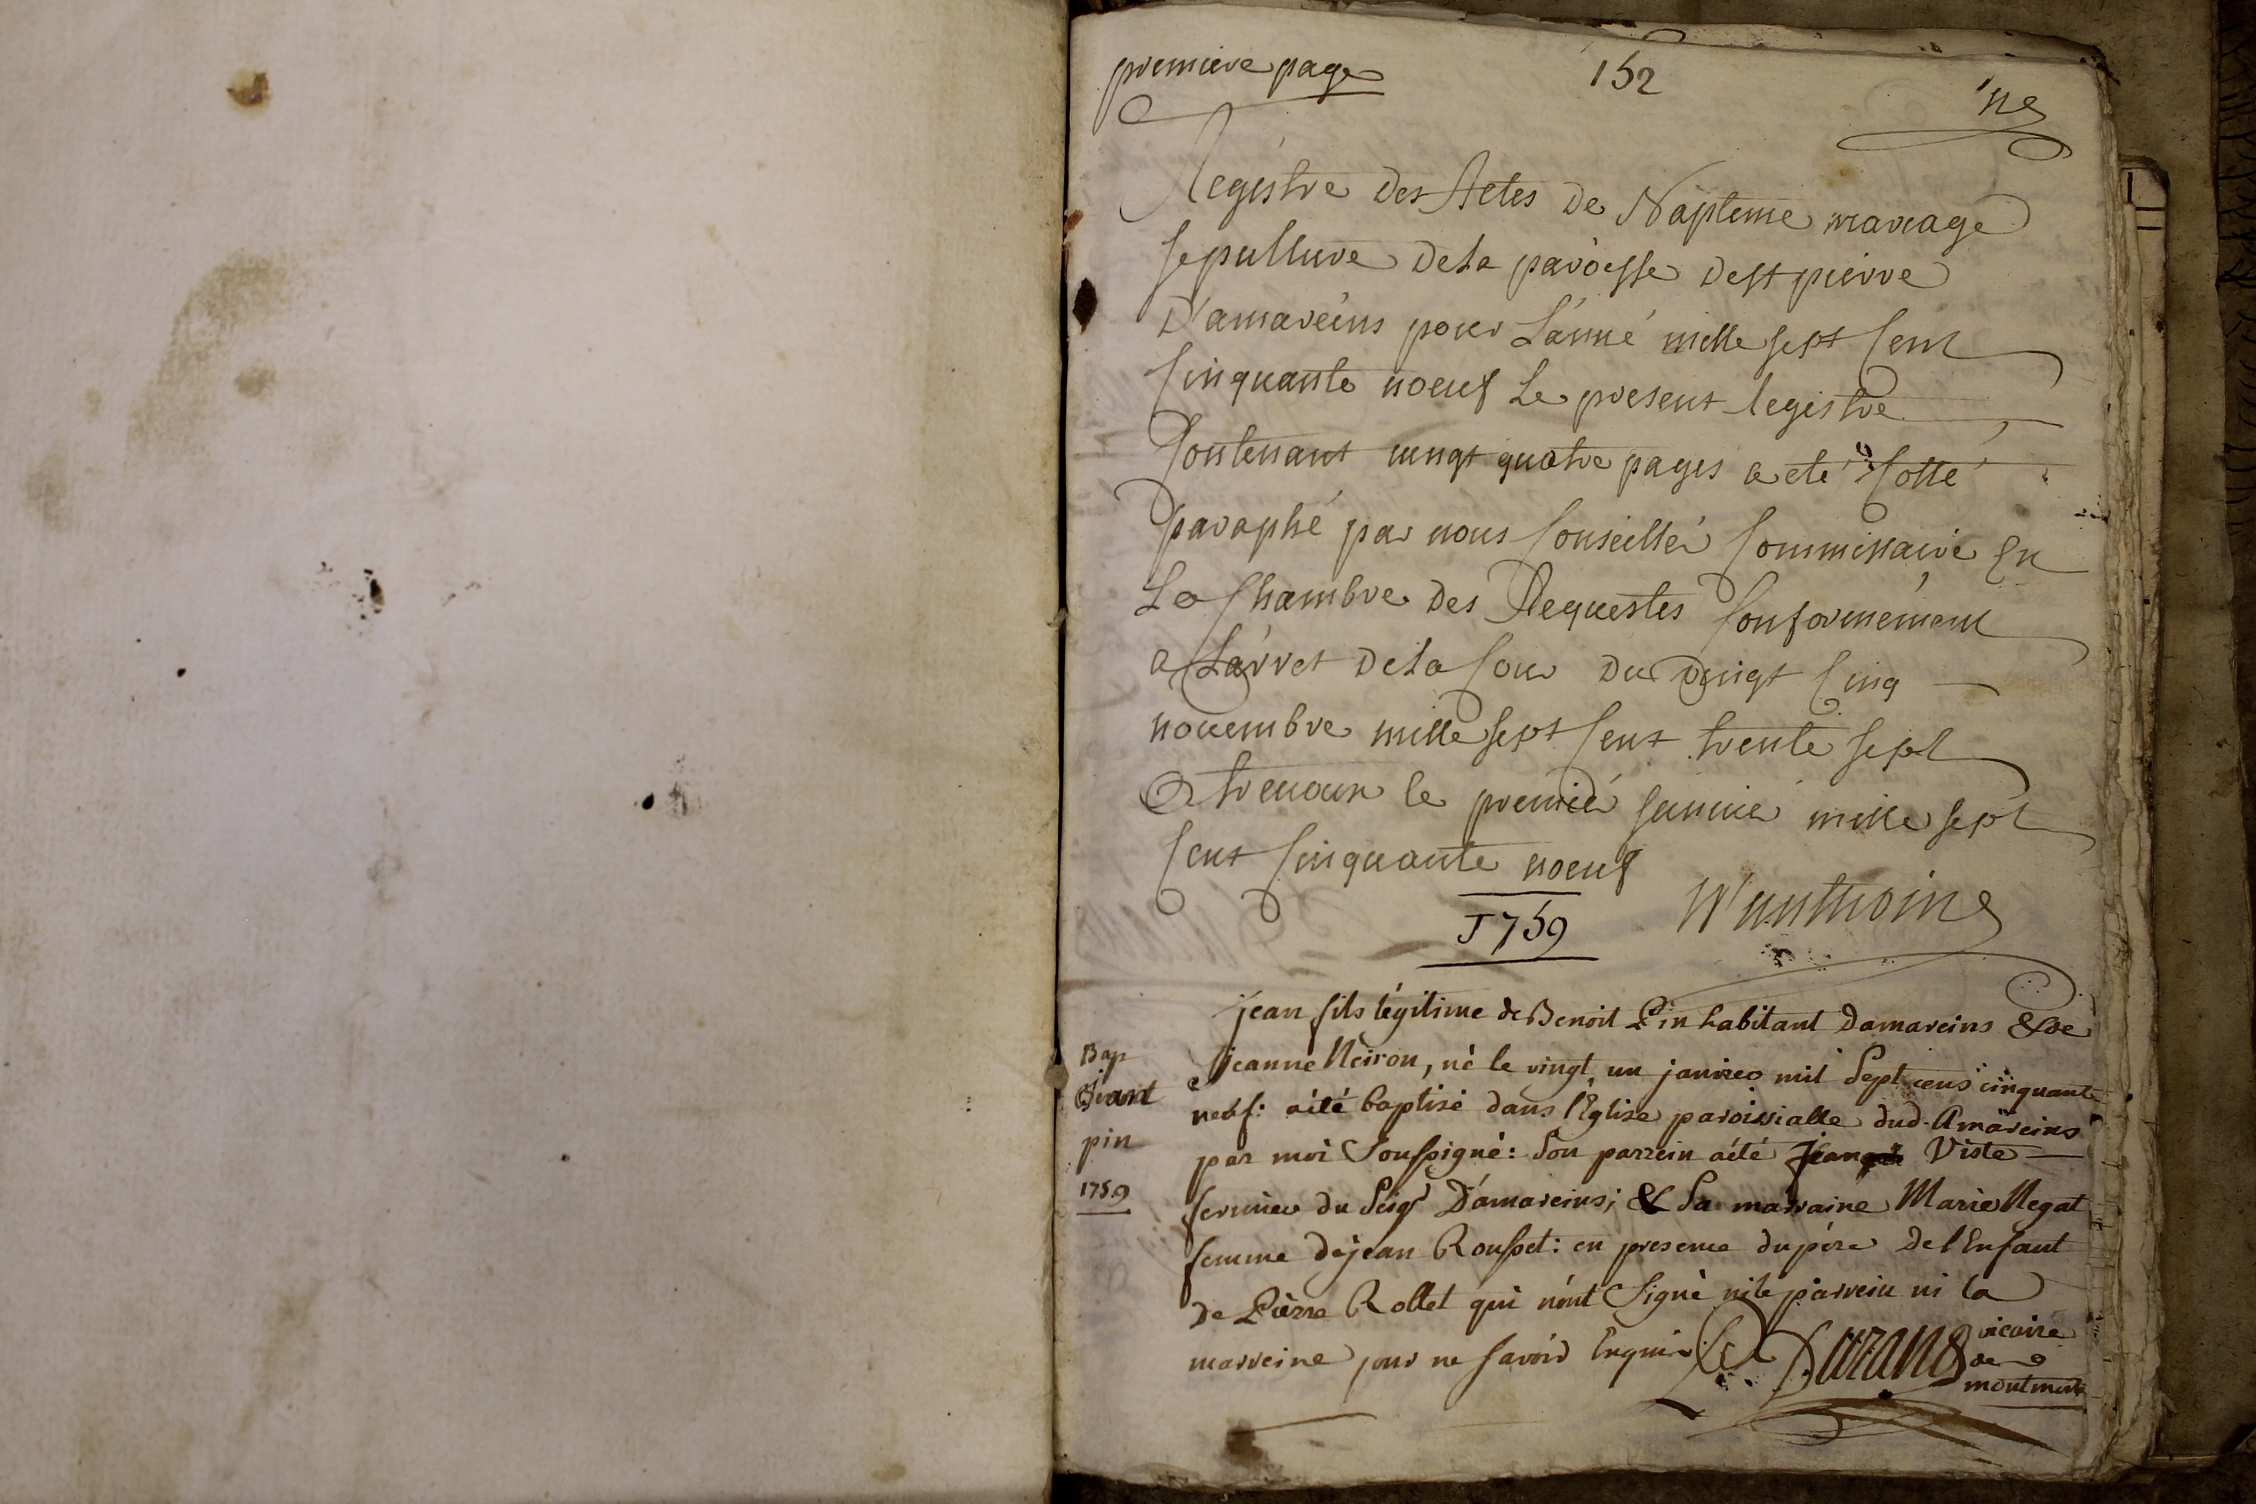 premiere page
152
Registre des Actes de Bapteme mariage
sepulture de la paroisse de st pierre
D'amareins pour L'anné mille sept Cent
Cinquante noeuf Le present Registre
Contenant vingt quatre pages a eté Cotté
paraphé par nous Conseillér Commissaire En
La Chambre des Requestes Conformément
a L'arret de la Cour du vingt Cinq
novembre mille sept Cent trente sept
A trevoux le premiér janvié mille sept
Cent Cinquante noeuf
1759
jean fils légitime de Benoit Pin habitant damareins & de
jeanne Neiron, né le vingt un janvier mil Sept cens cinquante
neuf: a été baptisé dans l'Eglise paroissialle dud. Amareins
par moi Soussigné: Son parrein a été Jean Viste
fermier du Seigr D'amareins; & Sa marraine Marie Negat
femme de jean Rousset: en presence du pére de l'Enfant
de Pierre Rollet qui n'ont Signé ni le parrein ni la
marreine pour ne savoir Enquis
vicaire
de
Bap
pin
1759